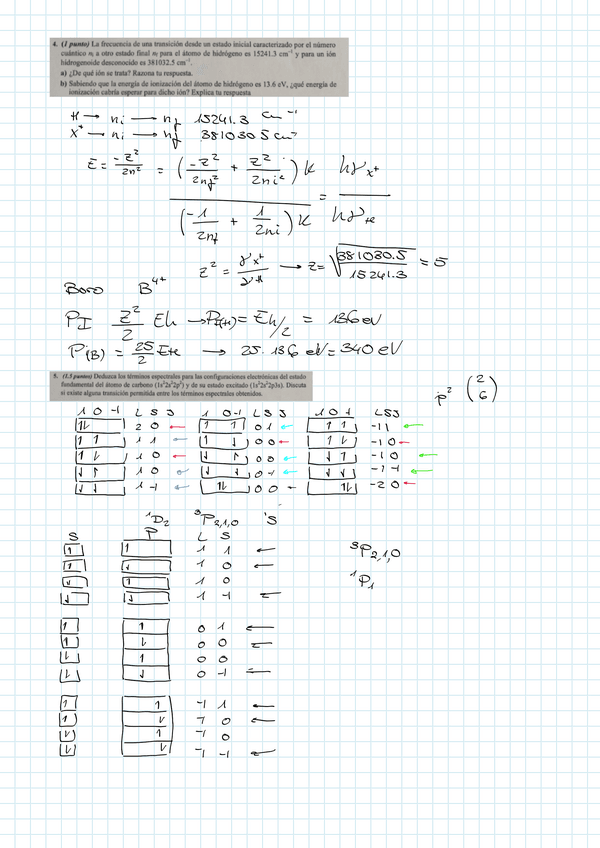 4. (1 punto) La frecuencia de una transición desde un estado inicial caracterizado por el número
cuántico ni a otro estado final nf para el átomo de hidrógeno es 15241.3 cm⁻¹ y para un ión
hidrogenoide desconocido es 381032.5 cm⁻¹.
a) ¿De qué ión se trata? Razona tu respuesta.
b) Sabiendo que la energía de ionización del átomo de hidrógeno es 13.6 eV, ¿qué energía de
ionización cabría esperar para dicho ión? Explica tu respuesta
H → ni → nf 15241.3 cm⁻¹
X⁺ → ni → nf 381030.5 cm⁻¹
E = -Z²/2n² = (-Z²/2nf² + Z²/2ni²) K / (-1/2nf + 1/2ni) K = hγX⁺ / hγH
Z² = γX⁺/γH → Z = √(381030.5/15241.3) = 5
Boro B⁴⁺
PI Z²/2 Eh → PI(H) = Eh/2 = 13.6 eV
PI(B) = 25/2 Eh → 25 · 13.6 eV = 340 eV
5. (1.5 puntos) Deduzca los términos espectrales para las configuraciones electrónicas del estado
fundamental del átomo de carbono (1s²2s²2p²) y de su estado excitado (1s²2s²2p3s). Discuta
si existe alguna transición permitida entre los términos espectrales obtenidos.
p² (2 6)
1 0 -1 L S J 1 0 -1 L S J 1 0 1 L S J
↑↓ 2 0 ← ↑ ↑ 0 1 ← ↑ ↑ -1 1 ←
↑ ↑ 1 1 ← ↑ ↓ 0 0 ← ↑ ↓ -1 0 ←
↑ ↓ 1 0 ← ↓ ↑ 0 0 ← ↓ ↑ -1 0 ←
↓ ↑ 1 0 ← ↓ ↓ 0 -1 ← ↓ ↓ -1 -1 ←
↓ ↓ 1 -1 ← ↑↓ 0 0 ← ↑↓ -2 0 ←
¹D₂ ³P₂,₁,₀ ¹S
S P L S
↑ ↑ 1 1 ← ³P₂,₁,₀
↑ ↓ 1 0 ←
↓ ↑ 1 0 ¹P₁
↓ ↓ 1 -1 ←
↑ ↑ 0 1 ←
↑ ↓ 0 0 ←
↓ ↑ 0 0
↓ ↓ 0 -1 ←
↑ ↑ -1 1 ←
↑ ↓ -1 0 ←
↓ ↑ -1 0
↓ ↓ -1 -1 ←